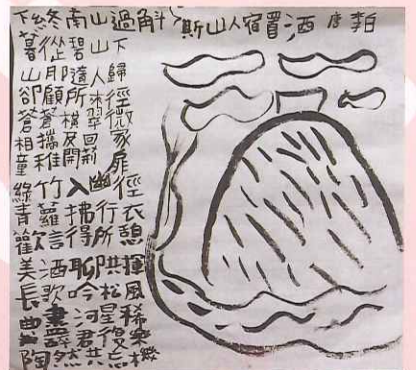 下終南山過斛斯山人宿置酒 唐 李白
暮從碧山下
山月隨人歸
卻顧所來徑
蒼蒼橫翠微
相攜及田家
童稚開荊扉
綠竹入幽徑
青蘿拂行衣
歡言得所憩
美酒聊共揮
長歌吟松風
曲盡河星稀
醉君復樂
陶然共忘機